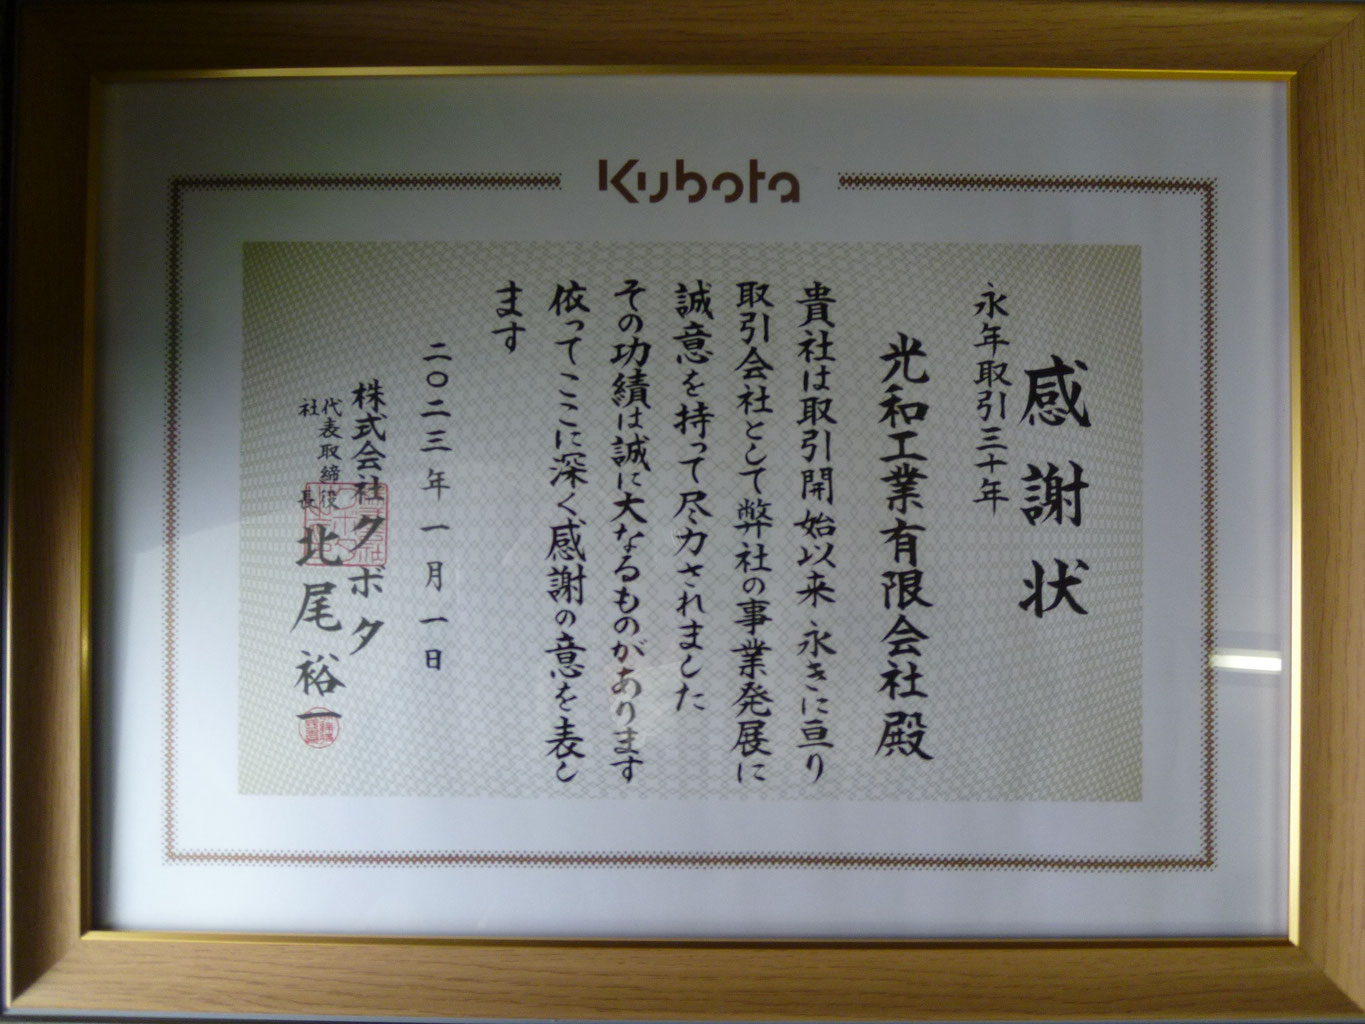 Kubota
感謝状
永年取引三十年
光和工業有限会社殿
貴社は取引開始以来 永きに亘り
取引会社として弊社の事業発展に
誠意を持って尽力されました
その功績は誠に大なるものがあります
依ってここに深く感謝の意を表し
ます
二〇二三年一月一日
株式会社クボタ
代表取締役
社長
北尾裕一